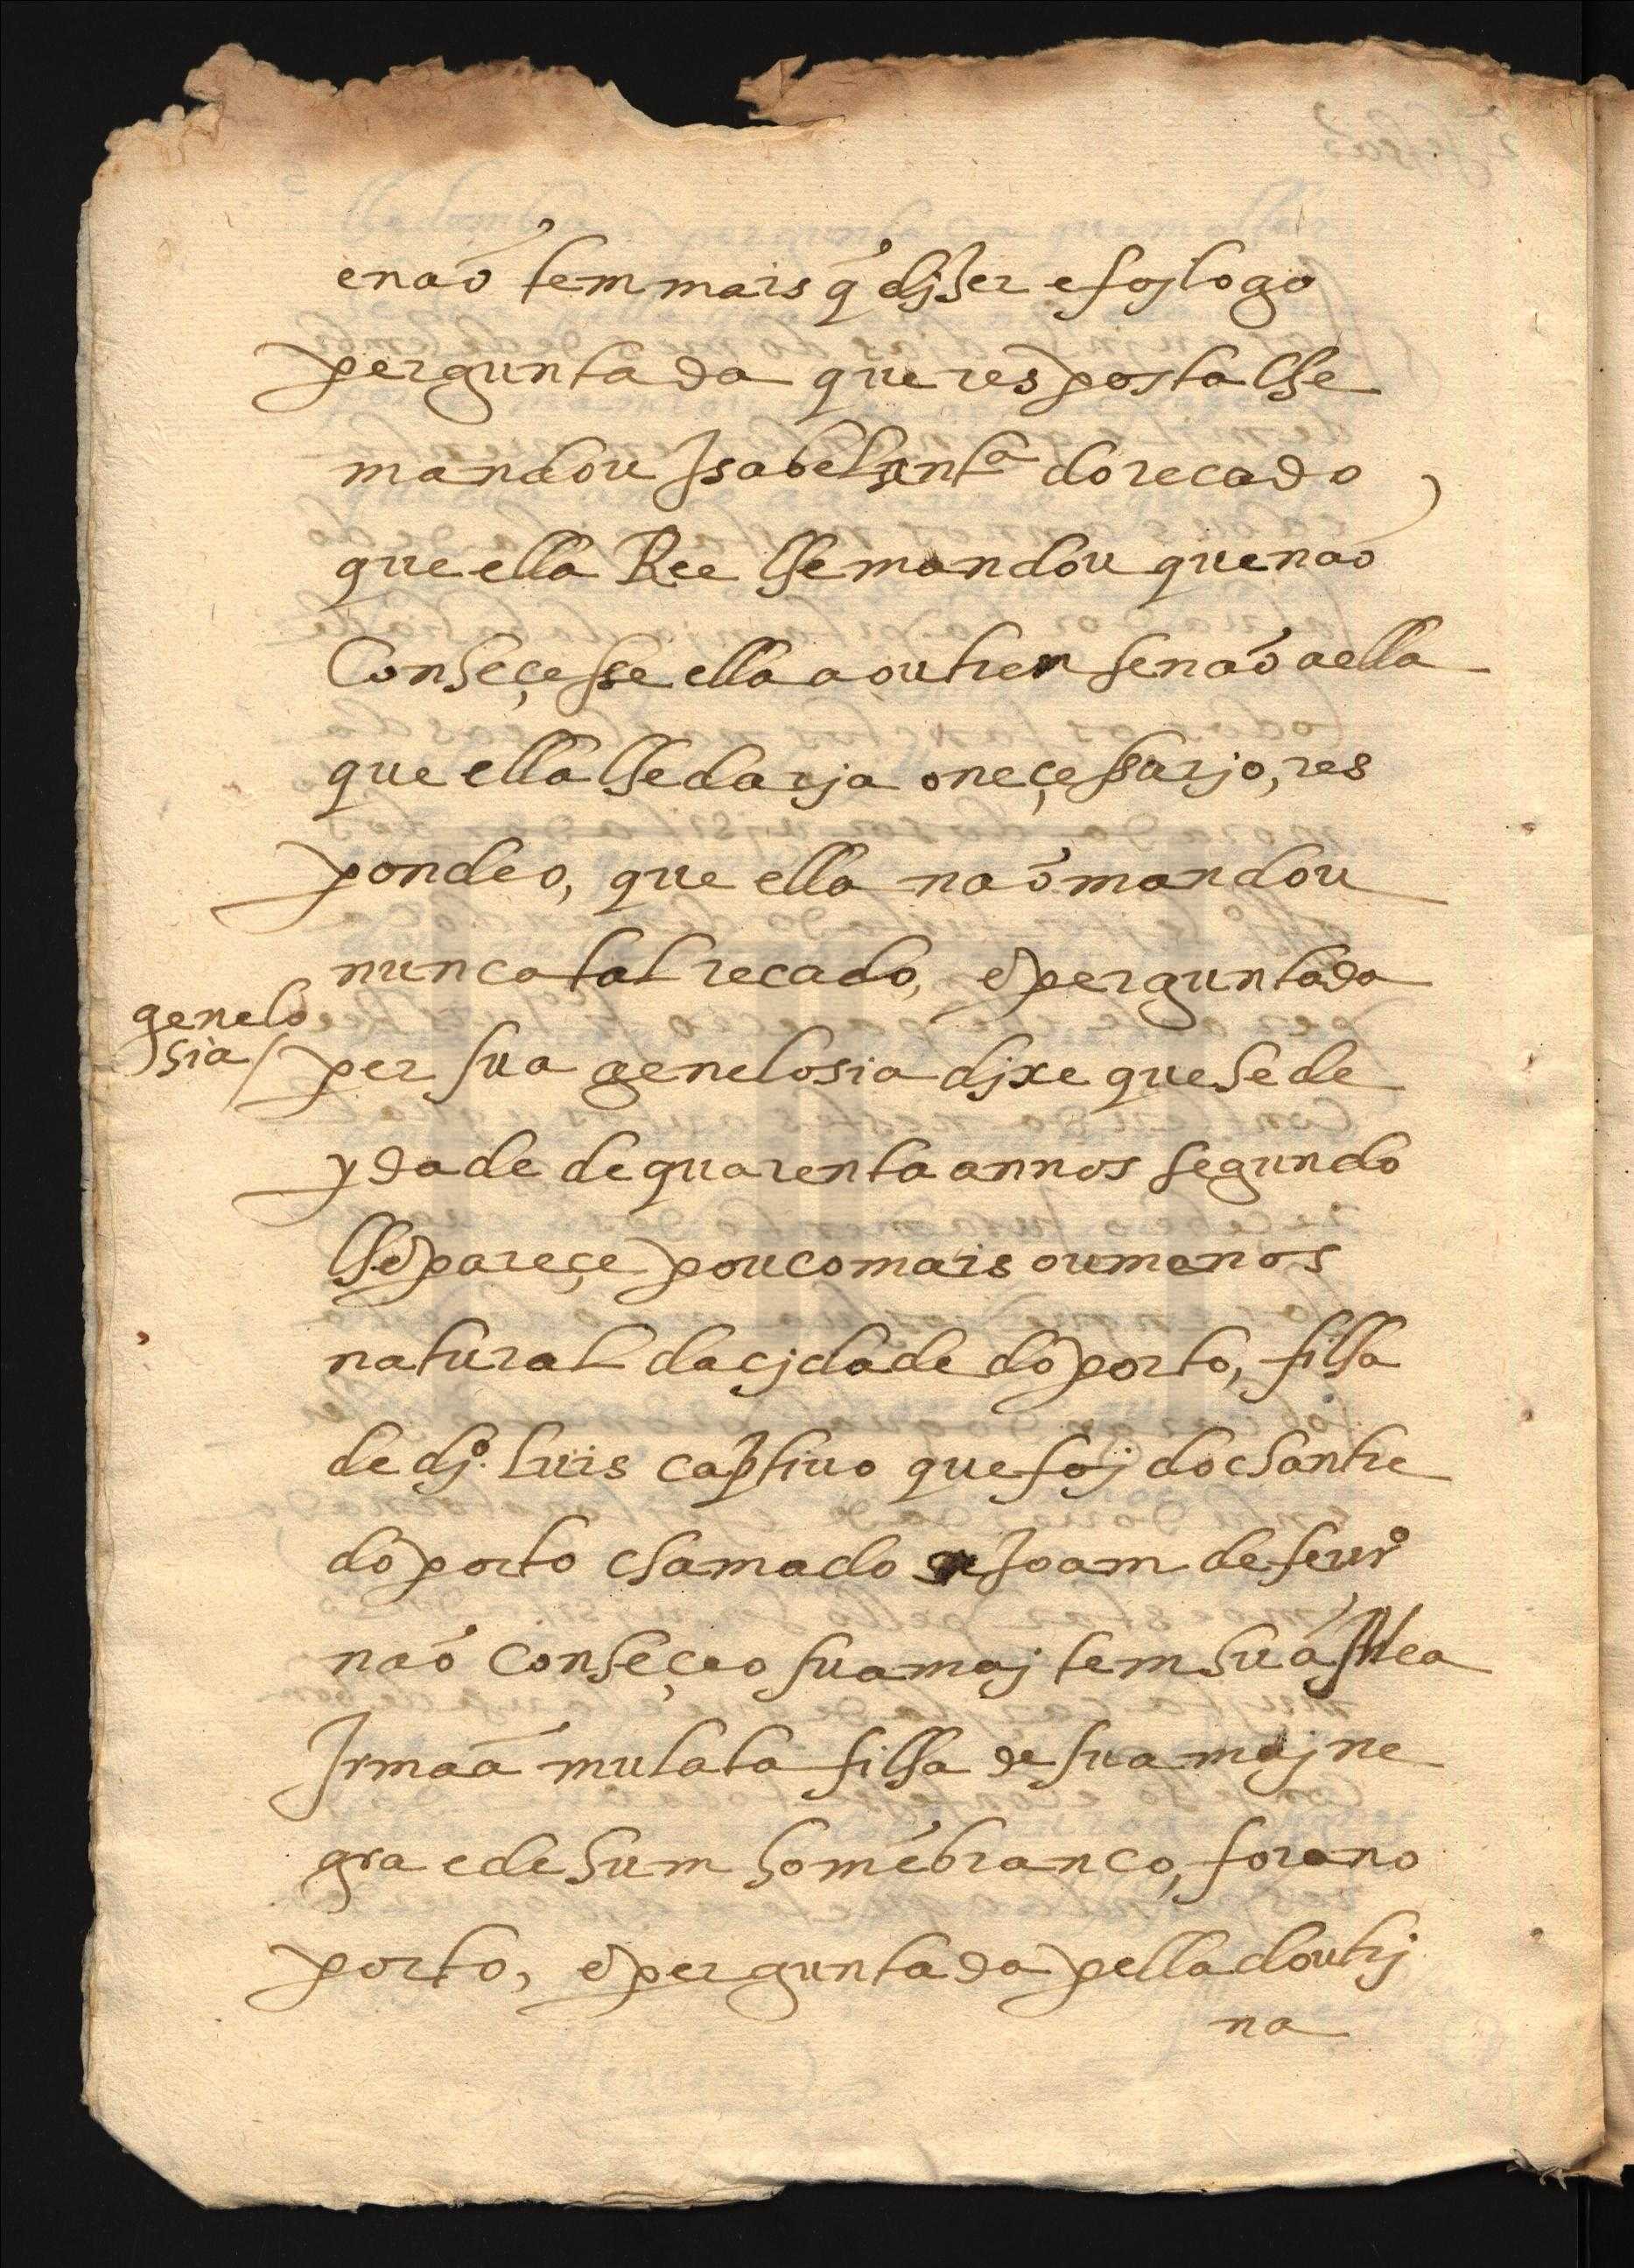 enaõ tem mais q̃ djzer e foj logo
perguntada que resposta lhe
mandou Isabel Ant.ª do recado
que ella Ree lhe mandou que naõ
Conheçesse ella a outren senaõ a ella
que ella lhe darja o neçessarjo, res
pondeo, que ella naõ mandou
nunca tal recado, e perguntada
genelo
sia
per sua genelosia djxe que he de
ydade de quarenta annos segundo
lhe pareçe pouco mais ou menos
natural da cjdade do porto, filha
de dj.º Luis captiuo que foj do chantre
do porto chamado Joam de
naõ conheçeo sua maj tem huã
Irmaã mulata filha de sua maj ne
gra e de hum homẽ branco, fora no
porto, e perguntada pella doutrj
na